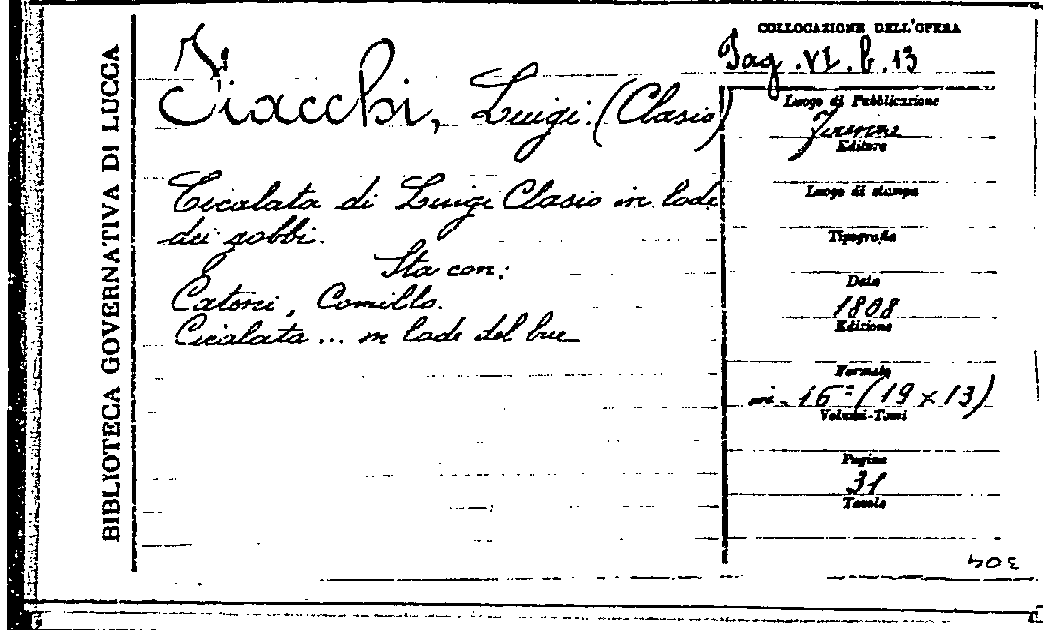 BIBLIOTECA GOVERNATIVA DI LUCCA
Fiacchi, Luigi. (Clasio)
Cicalata di Luigi Clasio in lode
dei gobbi.
Sta con:
Catoni, Camillo.
Cicalata ... in lode del bue
COLLOCAZIONE DELL'OPERA
Pag. VI. b. 13
Luogo di Pubblicazione
Firenze
Editore
Luogo di stampa
Tipografia
Data
1808
Edizione
Formato
in-16° (19 x 13)
Volumi-Tomi
Pagine
31
Tavole
304